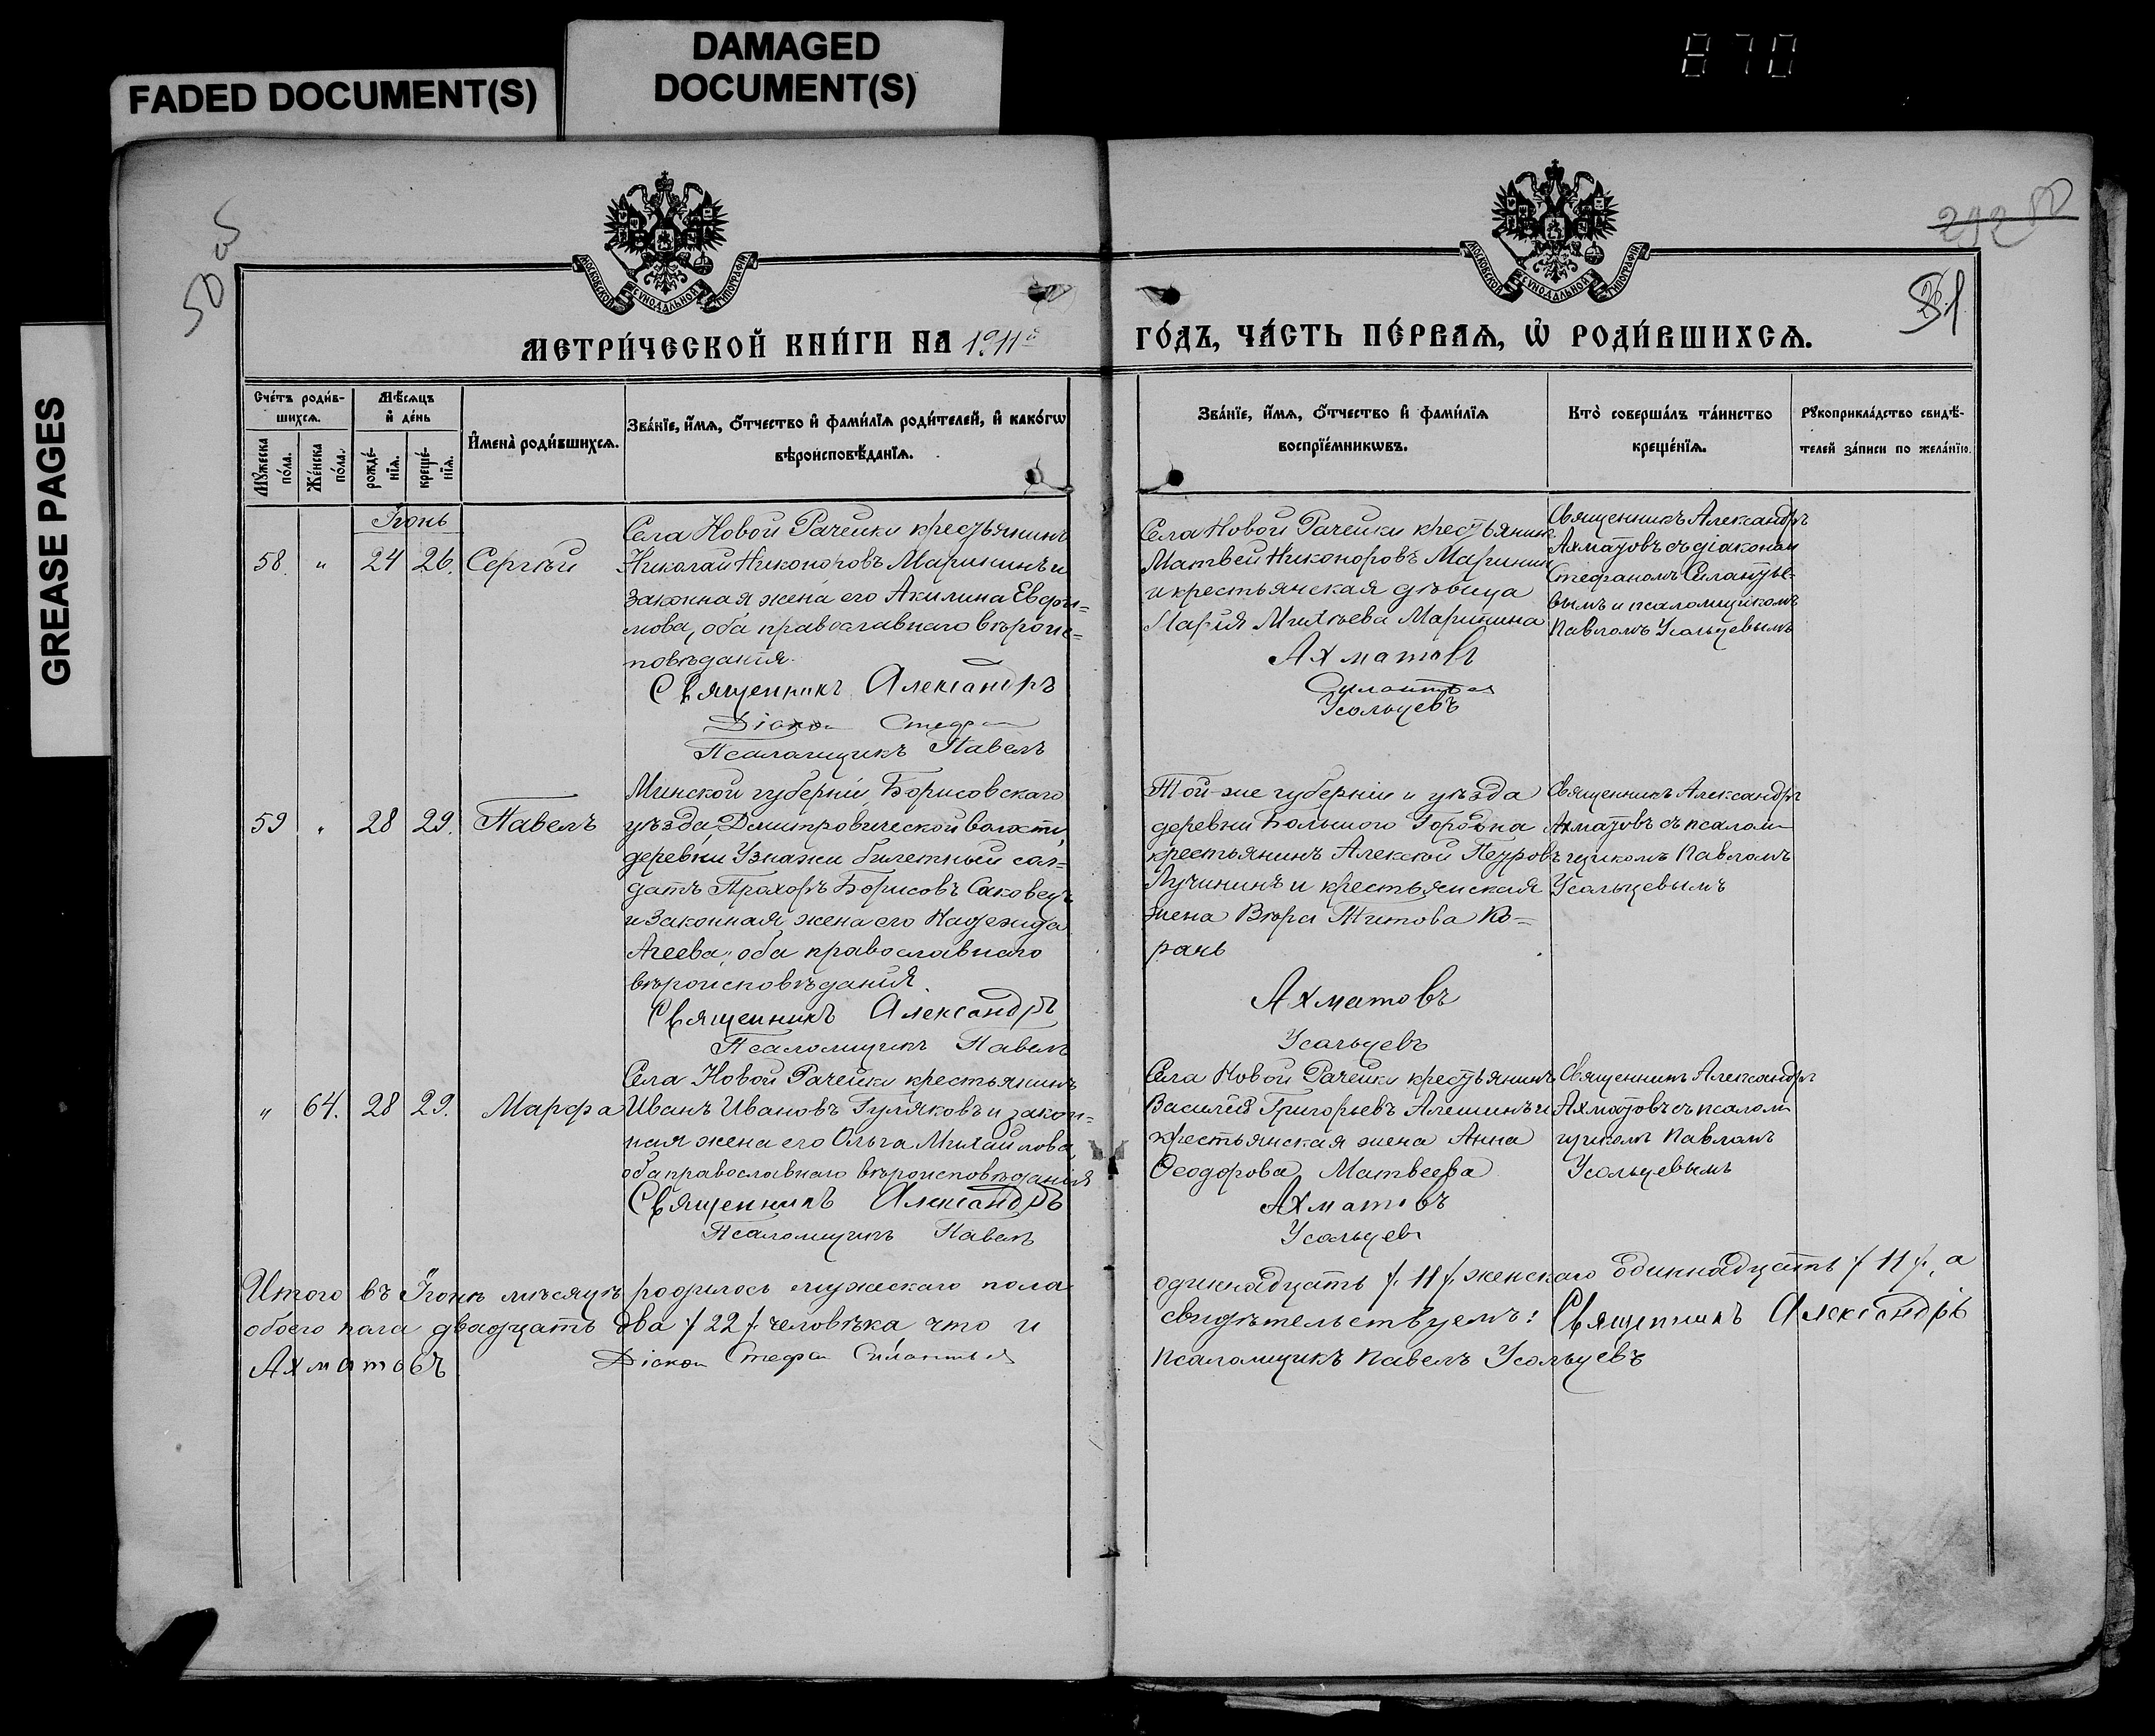 FADED DOCUMENT(S)
DAMAGED
DOCUMENT(S)
GREASE PAGES
870
292
МОСКОВСКОЙ СѴНОДАЛЬНОЙ ТИПОГРАФІИ
МОСКОВСКОЙ СѴНОДАЛЬНОЙ ТИПОГРАФІИ
МЕТРИ́ЧЕСКОЙ КНИ́ГИ НА 1911й
ГО́ДЪ, ЧА́СТЬ ПЕ́РВАѦ, Ѡ҆ РОДИ́ВШИХСѦ.
Сче́тъ роди́в-
шихсѧ.
Мꙋ́жеска
по́ла.
Же́нска
по́ла.
Мѣ́сѧцъ
и҆ де́нь
рожде́-
нїѧ.
креще́-
нїѧ.
И҆мена̀ роди́вшихсѧ.
Зва́нїе, и҆́мѧ, ѻ҆́тчество и҆ фами́лїѧ роди́телей, и҆ како́гѡ
вѣроисповѣ́данїѧ.
Зва́нїе, и҆́мѧ, ѻ҆́тчество и҆ фами́лїѧ
воспрїе́мникѡвъ.
Кто̀ соверша́лъ та́инство
креще́нїѧ.
Рꙋкоприкла́дство свидѣ́-
телей за́писи по жела́нїю.
Іюнь
58. " 24 26. Сергѣй
Села Новой Рачейки крестьянинъ
Николай Никоноровъ Маринин и
законная жена его Акилина Евфи-
мова, оба православнаго вѣроис-
повѣданія.
Священникъ Александръ
Діакон Стефан
Псаломщикъ Павелъ
Села Новой Рачейки крестьянин
Матвей Никоноровъ Маринин
и крестьянская дѣвица
Марія Матвѣева Маринина
Ахматовъ
Силантьев
Усольцевъ
Священникъ Александръ
Ахматовъ съ діаконом
Стефаномъ Силантье-
вымъ и псаломщикомъ
Павломъ Усольцевымъ
59 " 28 29. Павелъ
Минской губерніи, Борисовскаго
уѣзда, Дмитровической волости,
деревни Узнажи билетный сол-
датъ Прохоръ Борисовъ Саковец
и законная жена его Надежда
Агеева, оба православнаго
вѣроисповѣданія.
Священникъ Александръ
Псаломщикъ Павелъ
Той-же губерніи и уѣзда
деревни Большого
крестьянинъ Алексѣй Петровъ
Лучининъ и крестьянская
жена Вѣра Титова Ко-
рань
Ахматовъ
Усольцевъ
Священникъ Александръ
Ахматовъ съ псалом-
щикомъ Павломъ
Усольцевымъ
" 64. 28 29. Марфа
Села Новой Рачейки крестьянинъ
Иванъ Ивановъ Гуляковъ и закон-
ная жена его Ольга Михайлова,
оба православнаго вѣроисповѣданія
Священникъ Александръ
Псаломщикъ Павелъ
Села Новой Рачейки крестьянинъ
Василій Григорьевъ Алешинъ и
крестьянская жена Анна
Ѳеодорова Матвеева
Ахматовъ
Усольцев
Священникъ Александръ
Ахматовъ съ псалом-
щикомъ Павломъ
Усольцевымъ
Итого въ Іюнѣ мѣсяцѣ родилось мужескаго пола
одиннадцать /. 11 /. женскаго одиннадцать / 11 /., а
обоего пола двадцать два / 22 /. человѣка, что и
свидѣтельствуемъ: Священникъ Александръ
Ахматовъ. Діакон Стефан Силантьев
псаломщикъ Павелъ Усольцевъ